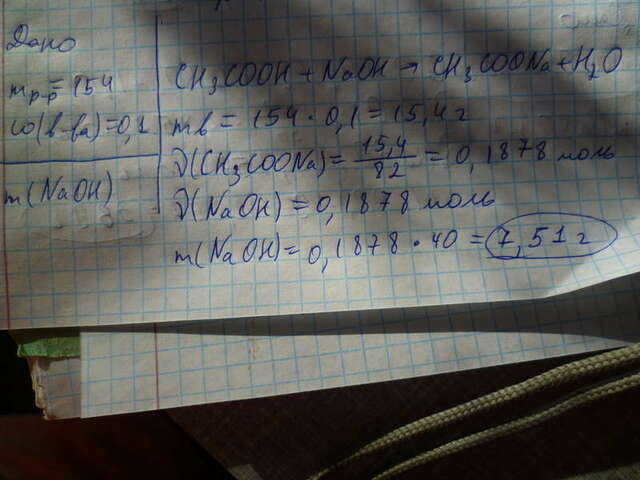 Дано
m р-р = 154
ω(в-ва)=0,1
m(NaOH)
CH₃COOH + NaOH → CH₃COONa + H₂O
mв = 154 · 0,1 = 15,4 г
ν(CH₃COONa) = 15,4/82 = 0,1878 моль
ν(NaOH) = 0,1878 моль
m(NaOH) = 0,1878 · 40 = 7,51 г